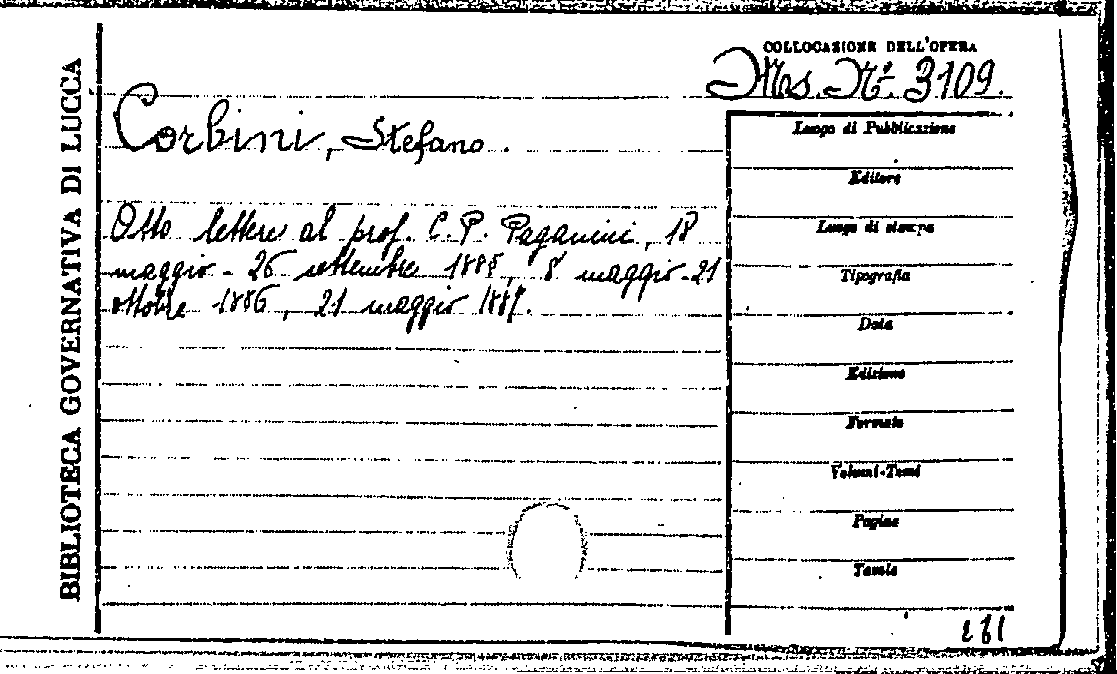 BIBLIOTECA GOVERNATIVA DI LUCCA
COLLOCASIONE DELL'OPERA
Ms. Nº 3109.
Corbini, Stefano.
Otto lettere al prof. C. P. Paganini, 18
maggio - 26 settembre 1885, 8 maggio - 21
ottobre 1886, 21 maggio
Luogo di Pubblicazione
Editore
Luogo di stampa
Tipografia
Data
Edizione
Formato
Volumi-Tomi
Pagine
Tavole